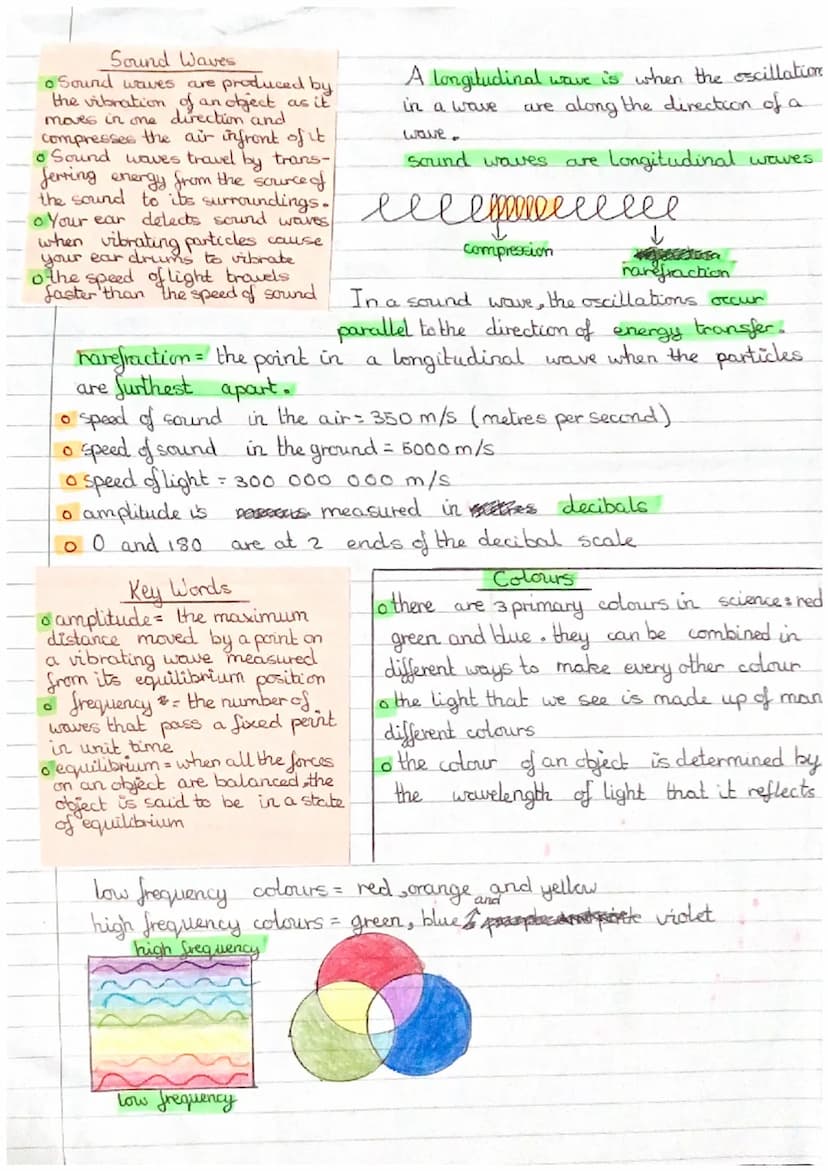 Sound Waves
o Sound waves are produced by
the vibration of an object as it
moves in one direction and
compresses the air infront of it
o Sound waves travel by trans-
ferring energy from the source of
the sound to its surroundings.
o Your ear detects sound waves
when vibrating particles cause
your ear drums to vibrate
o the speed of light travels
faster than the speed of sound
A longitudinal wave is when the oscillation
in a wave are along the direction of a
wave.
sound waves are longitudinal waves
compression
rarefraction
In a sound wave, the oscillations occur
parallel to the direction of energy transfer.
rarefraction = the point in a longitudinal wave when the particles
are furthest apart.
o speed of sound in the air = 350 m/s (metres per second)
o speed of sound in the ground = 5000 m/s
o speed of light = 300 000 000 m/s
o amplitude is measured in decibals
o 0 and 180 are at 2 ends of the decibal scale
Key Words
o amplitude = the maximum
distance moved by a point on
a vibrating wave measured
from its equilibrium position
o frequency = the number of
waves that pass a fixed point
in unit time
o equilibrium = when all the forces
on an object are balanced, the
object is said to be in a state
of equilibrium
Colours
o there are 3 primary colours in science: red
green and blue. they can be combined in
different ways to make every other colour
o the light that we see is made up of man
different colours
o the colour of an object is determined by
the wavelength of light that it reflects
low frequency colours = red, orange, and yellow
high frequency colours = green, blue and violet
high frequency
low frequency